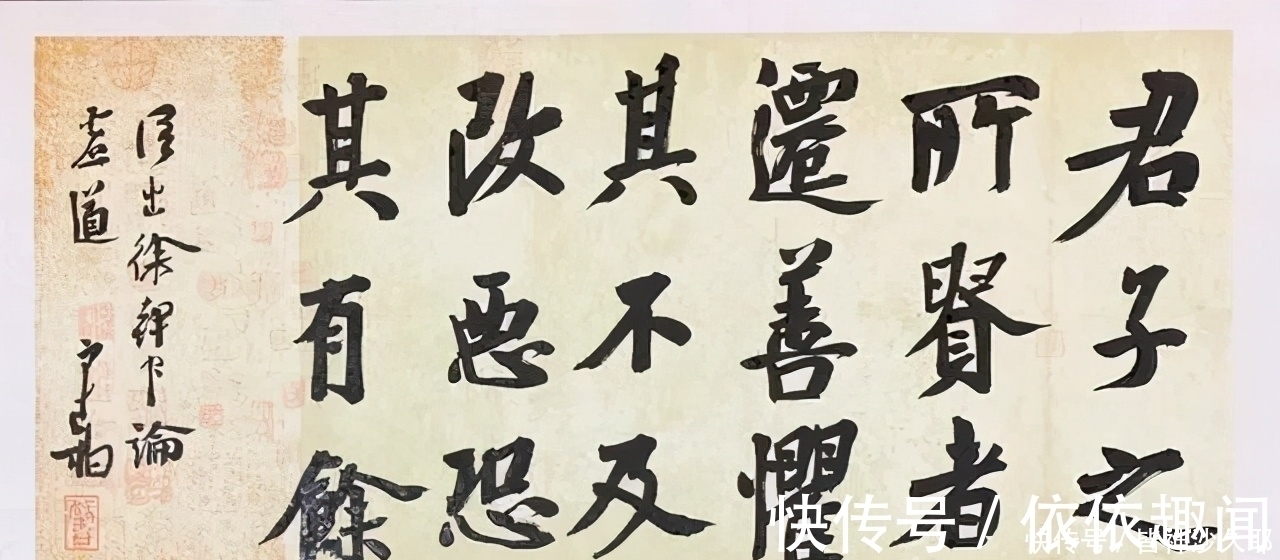 君子之
所賢者
遷善懼
其不及
改惡恐
其有餘
语出徐幹中論
虚道
快传号 / 依依趣闻